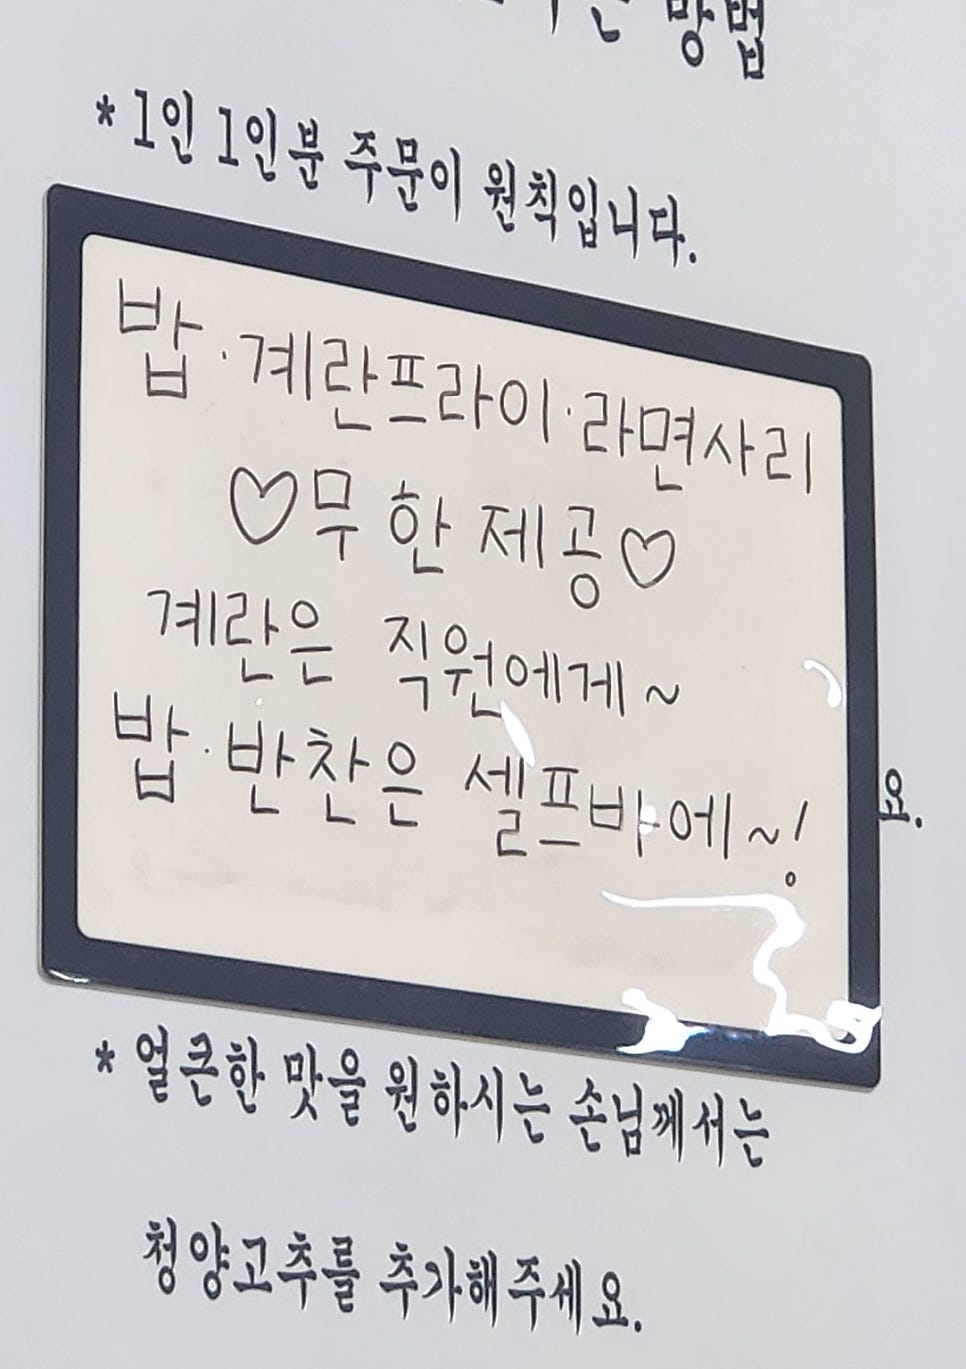 방법
* 1인 1인분 주문이 원칙입니다.
밥·계란프라이·라면사리
♡무한제공♡
계란은 직원에게~
밥·반찬은 셀프바에~!
요.
* 얼큰한 맛을 원하시는 손님께서는
청양고추를 추가해주세요.